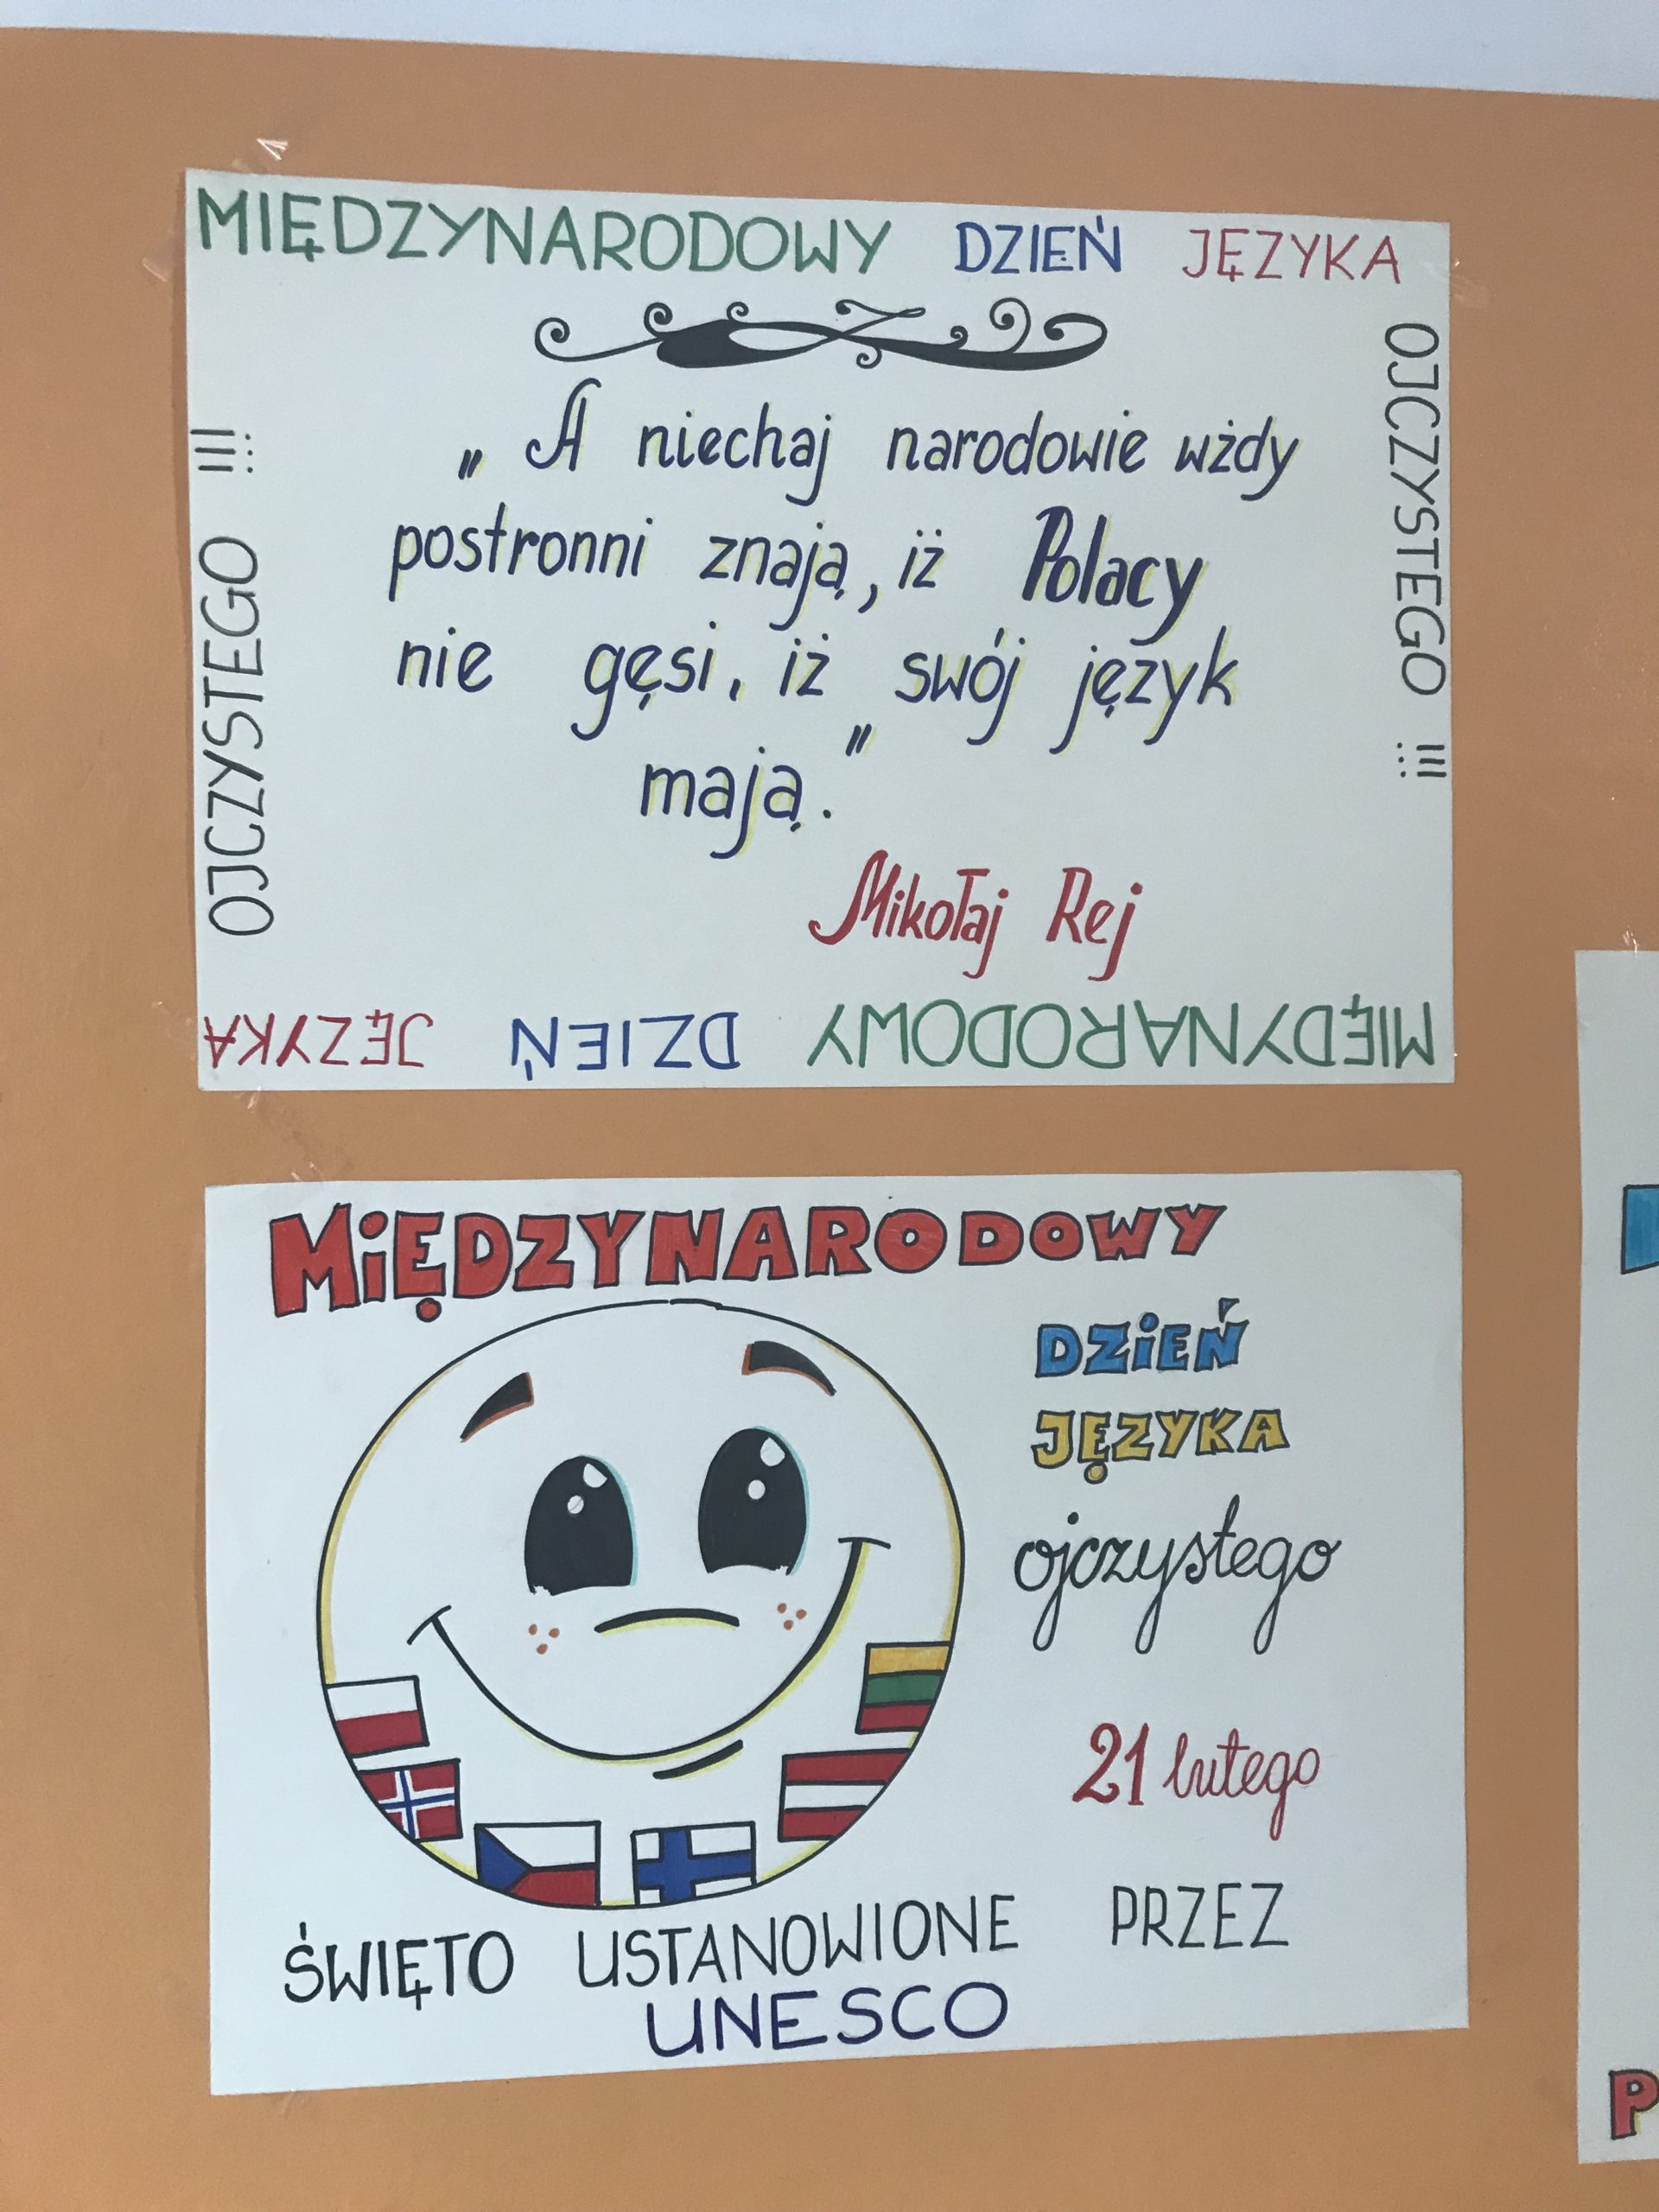 MIĘDZYNARODOWY DZIEŃ JĘZYKA
OJCZYSTEGO !!!
„A niechaj narodowie wżdy
postronni znają, iż Polacy
nie gęsi, iż swój język
mają."
Mikołaj Rej
MIĘDYNARODOWY DZIEŃ JĘZYKA
OJCZYSTEGO !!!
MiĘDZYNARODOWY
DZiEŃ
JĘZYKA
ojczystego
21 lutego
ŚWIĘTO USTANOWIONE PRZEZ
UNESCO
P